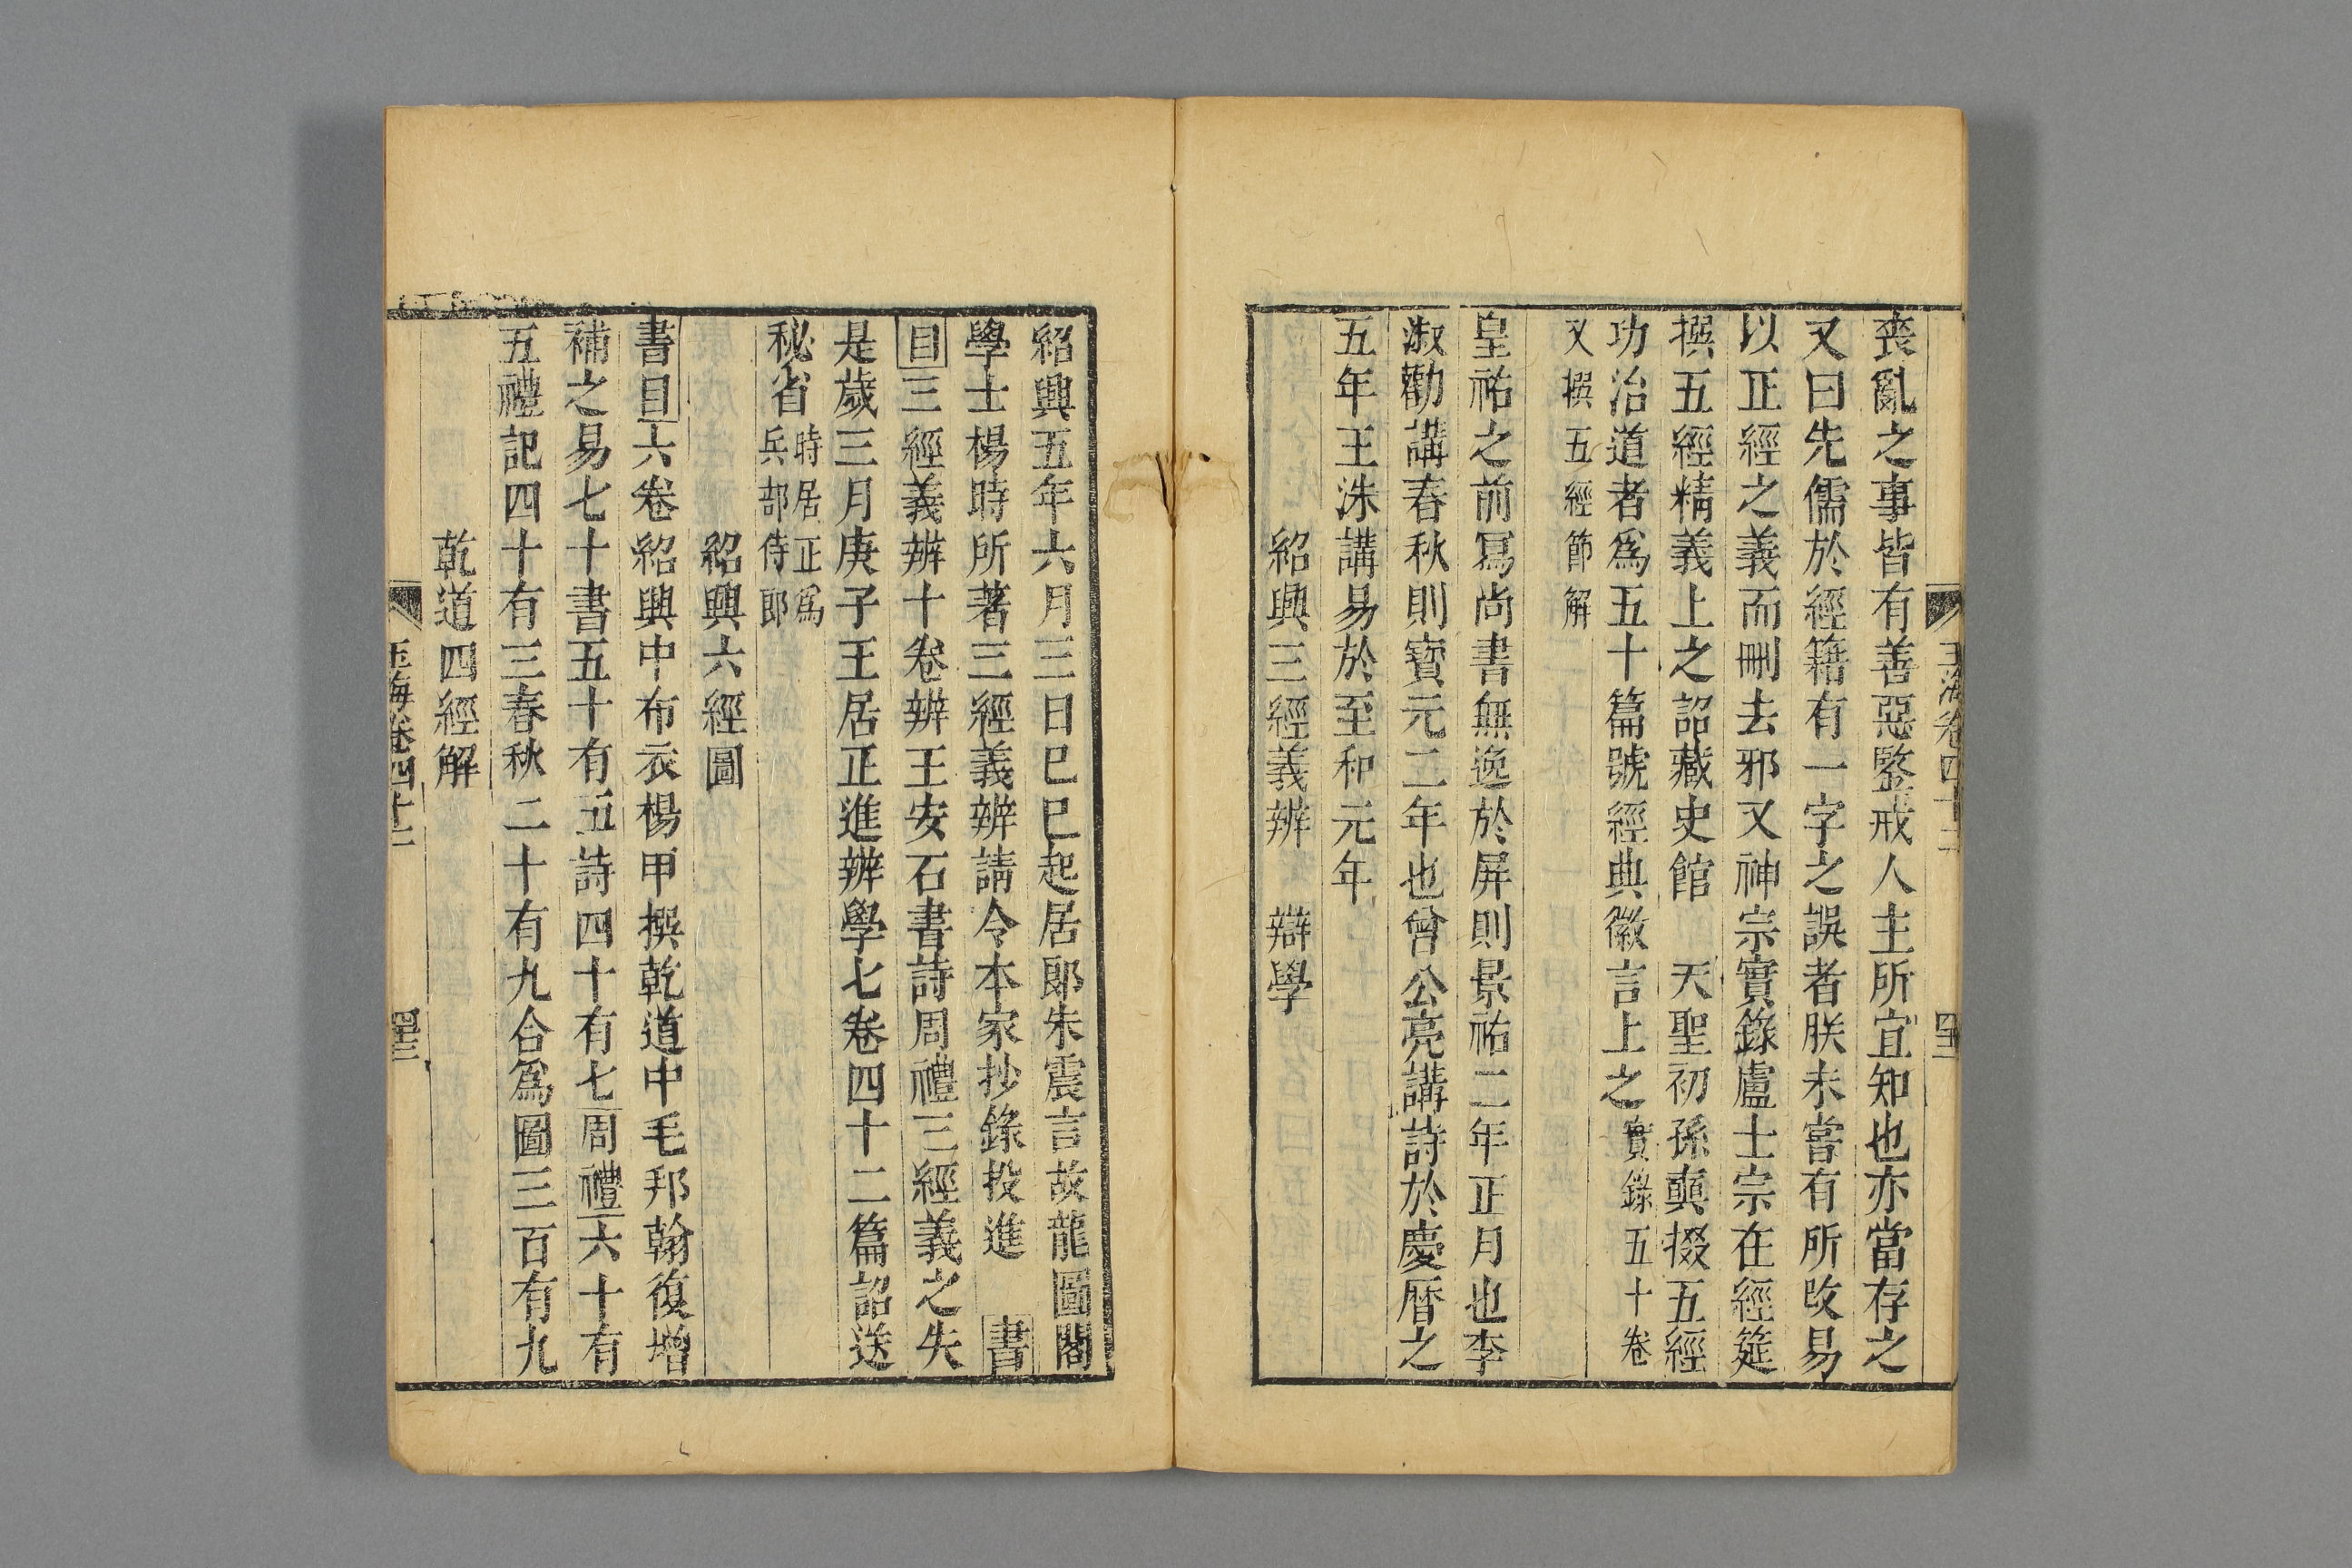 玉海卷四十二
喪亂之事皆有善惡鑒戒人主所宜知也亦當存之
又曰先儒於經籍有一字之誤者朕未嘗有所改易
以正經之義而刪去邪又神宗實錄盧士宗在經筵
撰五經精義上之詔藏史館　天聖初孫奭掇五經
功治道者爲五十篇號經典徽言上之實錄五十卷
又撰五經節解
皇祐之前冩尚書無逸於屏則景祐二年正月也李
淑勸講春秋則寶元二年也曾公亮講詩於慶曆之
五年王洙講易於至和元年
紹興三經義辨　辯學
紹興五年六月三日巳巳起居郞朱震言故龍圖閣
學士楊時所著三經義辨請令本家抄錄投進　書
目三經義辨十卷辨王安石書詩周禮三經義之失
是歲三月庚子王居正進辨學七卷四十二篇詔送
秘省時居正爲兵部侍郞
紹興六經圖
書目六卷紹興中布衣楊甲撰乾道中毛邦翰復增
補之易七十書五十有五詩四十有七周禮六十有
五禮記四十有三春秋二十有九合爲圖三百有九
乾道四經解
玉海卷四十二
四十三